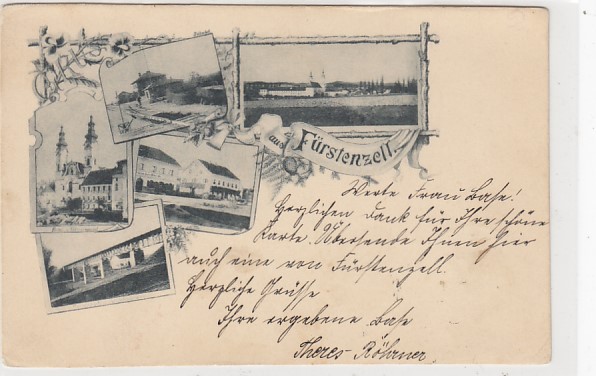 aus Fürstenzell.
Werte Frau Base!
Herzlichen Dank für Ihre schöne
Karte. Übersende Ihnen hier
auch eine von Fürstenzell.
Herzliche Grüsse
Ihre ergebene Base
Theres Röhrner